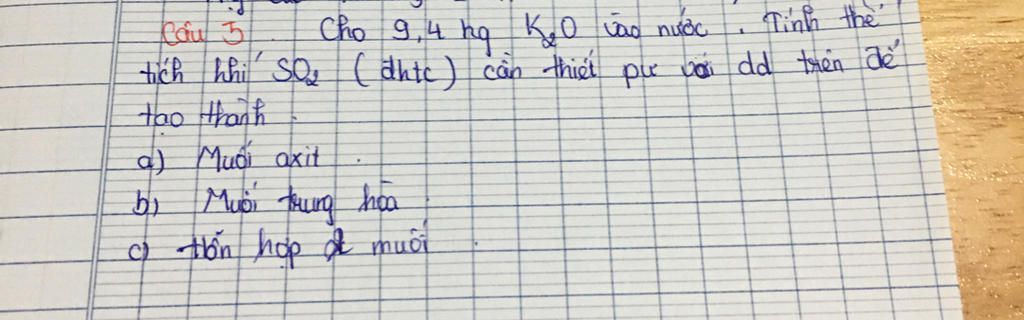 Câu 5. Cho 9,4 kg K₂O vào nước. Tính thể
tích khí SO₂ (đktc) cần thiết pư với dd trên để
tạo thành
a) Muối axit.
b) Muối trung hòa
c) Hỗn hợp 2 muối.